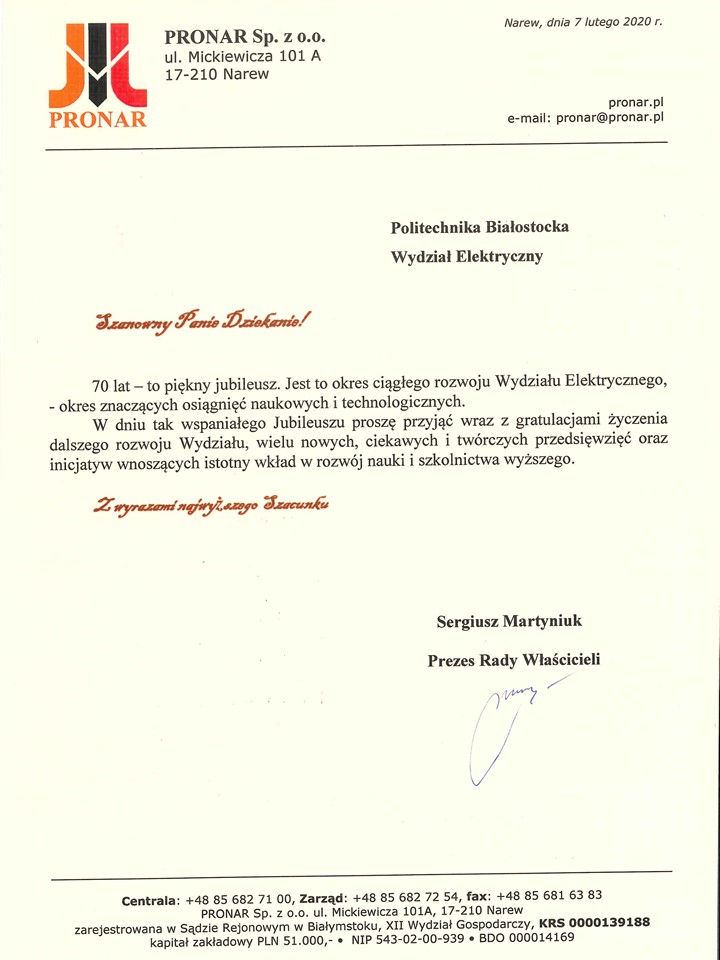 Narew, dnia 7 lutego 2020 r.
PRONAR Sp. z o.o.
ul. Mickiewicza 101 A
17-210 Narew
PRONAR
pronar.pl
e-mail: pronar@pronar.pl
Politechnika Białostocka
Wydział Elektryczny
Szanowny Panie Dziekanie!
70 lat – to piękny jubileusz. Jest to okres ciągłego rozwoju Wydziału Elektrycznego,
- okres znaczących osiągnięć naukowych i technologicznych.
W dniu tak wspaniałego Jubileuszu proszę przyjąć wraz z gratulacjami życzenia
dalszego rozwoju Wydziału, wielu nowych, ciekawych i twórczych przedsięwzięć oraz
inicjatyw wnoszących istotny wkład w rozwój nauki i szkolnictwa wyższego.
Z wyrazami najwyższego Szacunku
Sergiusz Martyniuk
Prezes Rady Właścicieli
Centrala: +48 85 682 71 00, Zarząd: +48 85 682 72 54, fax: +48 85 681 63 83
PRONAR Sp. z o.o. ul. Mickiewicza 101A, 17-210 Narew
zarejestrowana w Sądzie Rejonowym w Białymstoku, XII Wydział Gospodarczy, KRS 0000139188
kapitał zakładowy PLN 51.000,- • NIP 543-02-00-939 • BDO 000014169